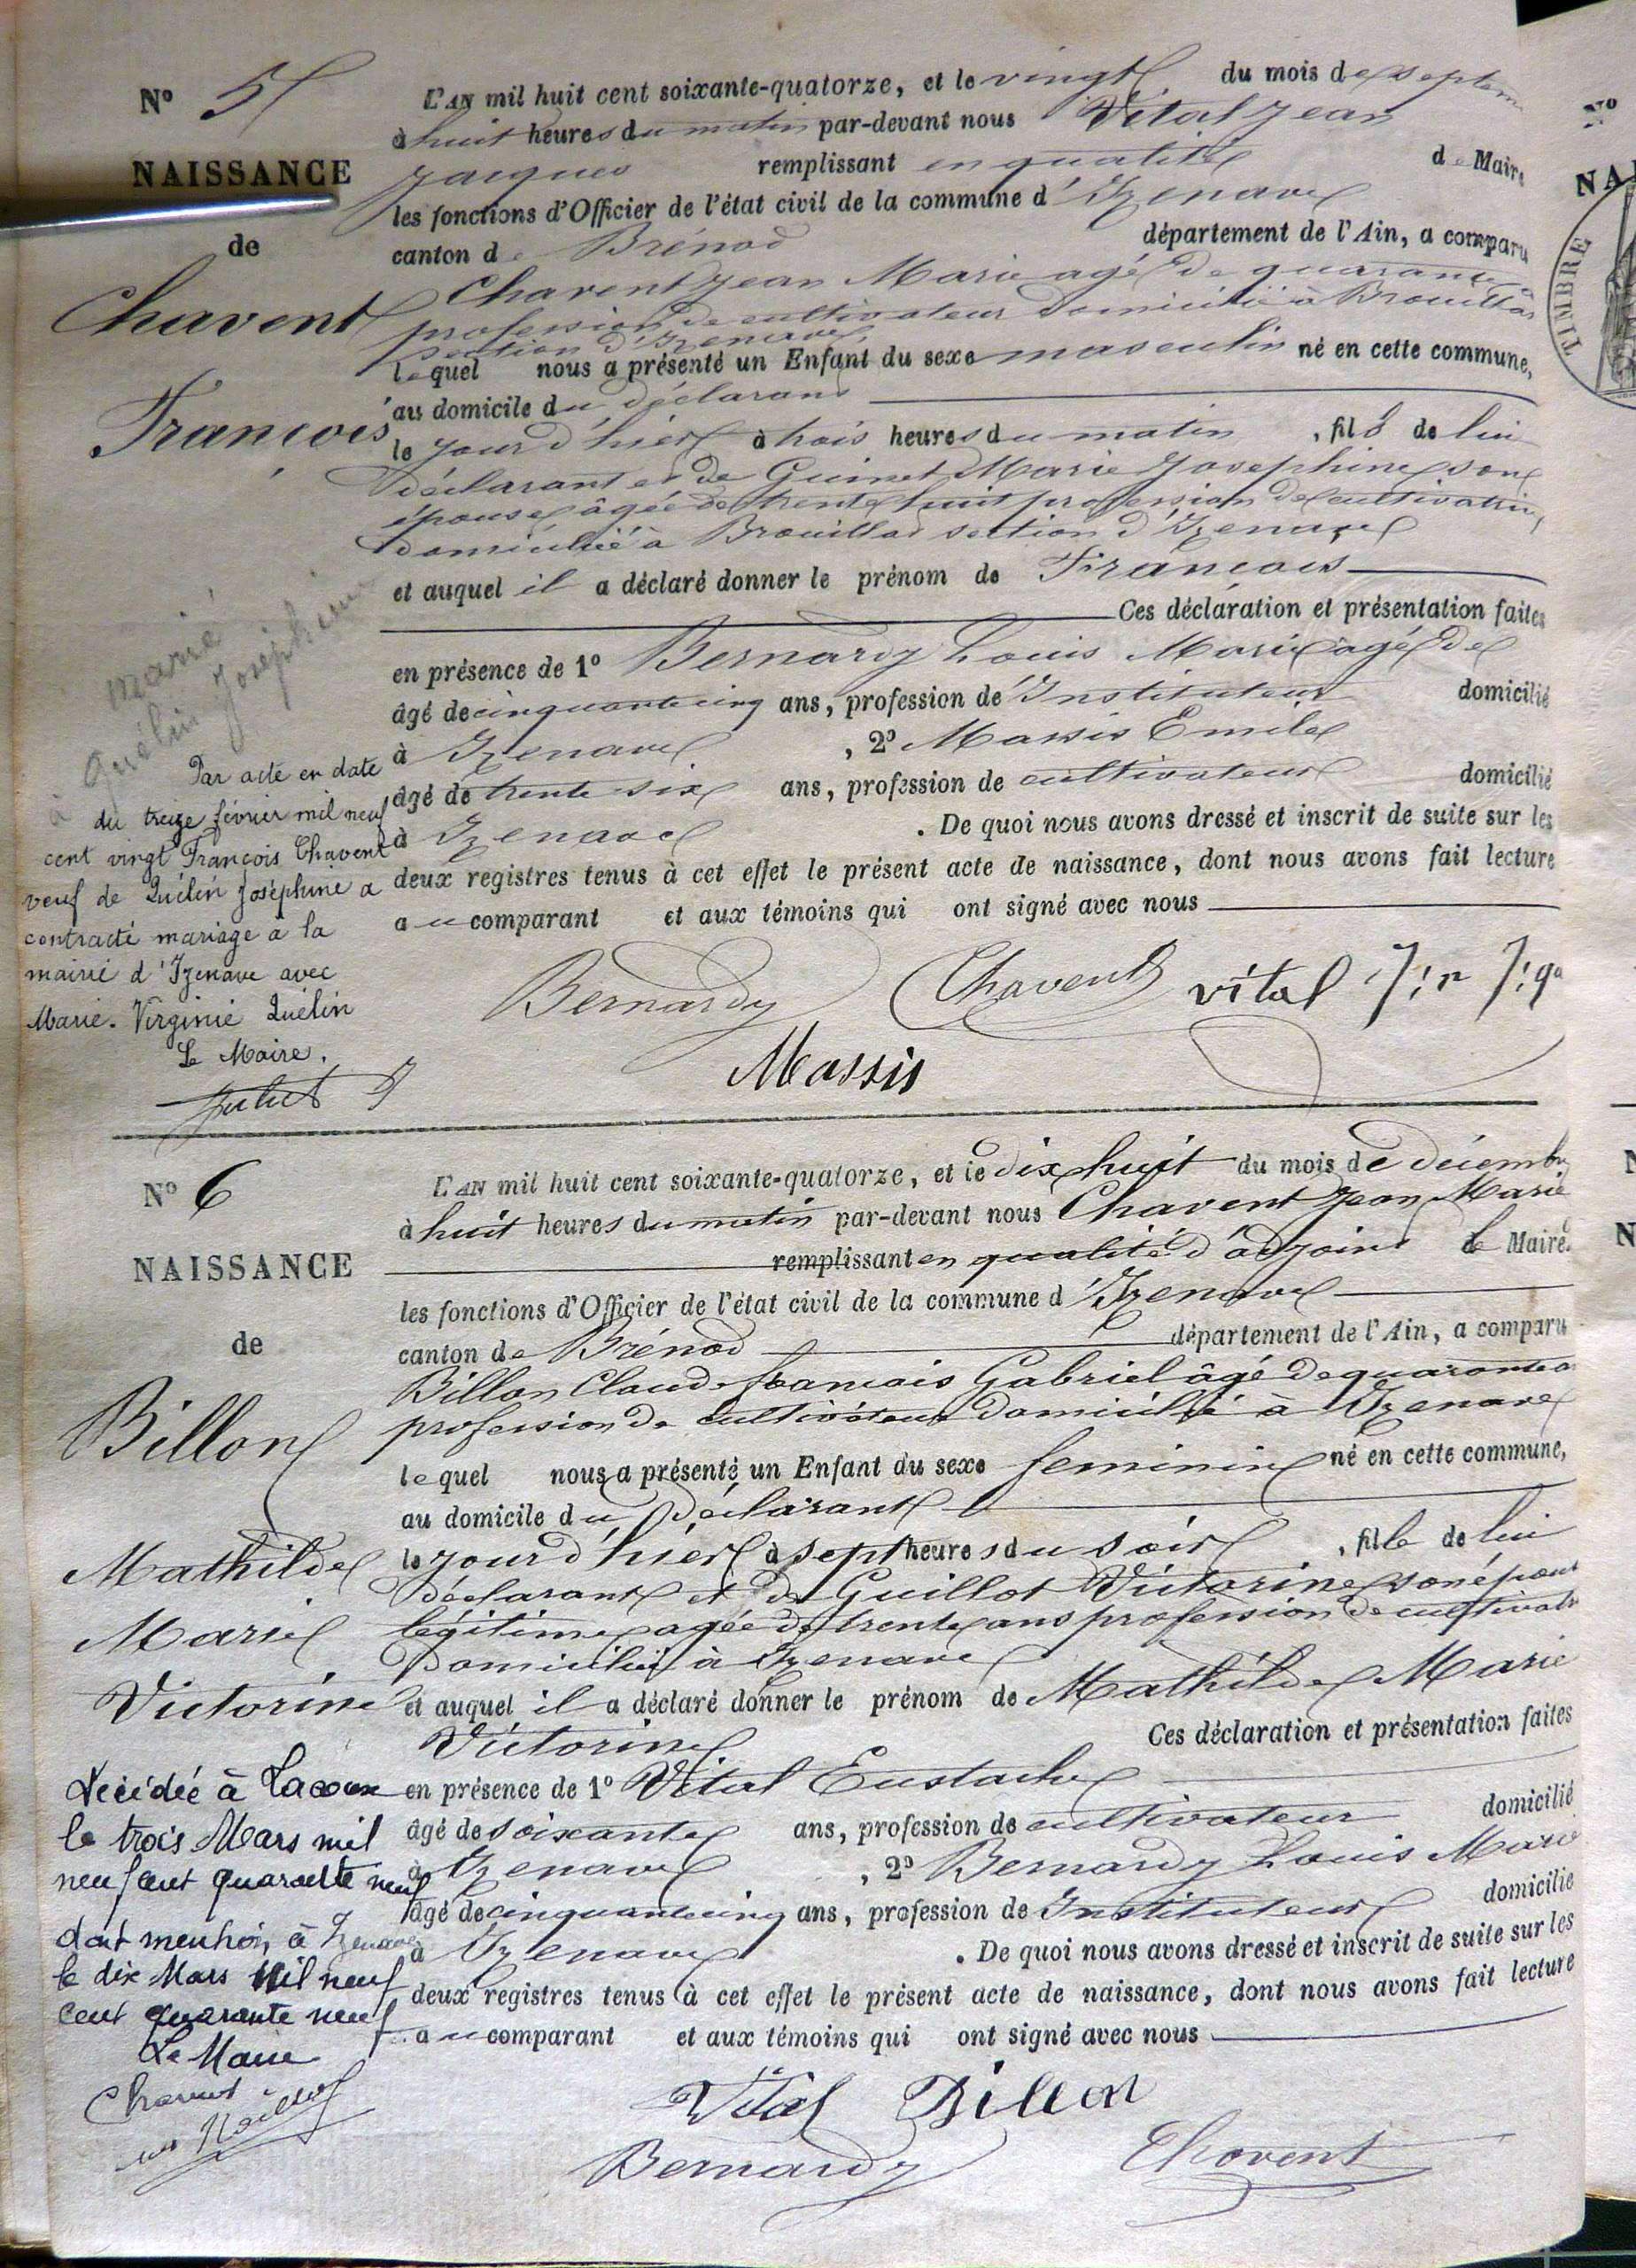 N° 5
NAISSANCE
de
Chavent
François
L'AN mil huit cent soixante-quatorze, et le vingt du mois de septem
à huit heures du matin par-devant nous Vital Jean
Jacques remplissant en qualité de Maire
les fonctions d'Officier de l'état civil de la commune d'Izenave
canton de Brénod département de l'Ain, a comparu
Chavent Jean Marie agé de quarante
profession de cultivateur domicilié à Brouillat
section d'Izenave
lequel nous a présenté un Enfant du sexe masculin né en cette commune,
au domicile du déclarant
le jour d'hier à trois heures du matin, fils de lui
déclarant et de Guinet Marie Josephine son
épouse âgée de trente huit profession de cultivatrice
domiciliée à Brouillat section d'Izenave
et auquel il a déclaré donner le prénom de François
Ces déclaration et présentation faites
en présence de 1° Bernardy Louis Marie âgé de
âgé de cinquante cinq ans, profession de Instituteur domicilié
à Izenave, 2° Massis Emile
âgé de trente six ans, profession de cultivateur domicilié
à Izenave. De quoi nous avons dressé et inscrit de suite sur les
deux registres tenus à cet effet le présent acte de naissance, dont nous avons fait lecture
au comparant et aux témoins qui ont signé avec nous
Bernardy Chavent vital
Massis
marié
à Quélin Joséphine
Par acte en date
du treize février mil neuf
cent vingt François Chavent
veuf de Quélin Joséphine a
contracté mariage à la
mairie d'Izenave avec
Marie-Virginie Quélin
Le Maire,
N° 6
NAISSANCE
de
Billon
Mathilde
Marie
Victorine
L'AN mil huit cent soixante-quatorze, et le dix huit du mois de décembre
à huit heures du matin par-devant nous Chavent Jean Marie
remplissant en qualité d'adjoint le Maire
les fonctions d'Officier de l'état civil de la commune d'Izenave
canton de Brénod département de l'Ain, a comparu
Billon Claude francois Gabriel âgé de quarante
profession de cultivateur domicilié à Izenave
lequel nous a présenté un Enfant du sexe feminin né en cette commune,
au domicile du déclarant
le jour d'hier à sept heures du soir, fille de lui
déclarant et de Guillot Victorine son épouse
légitime agée de trente ans profession de cultivatr
domiciliée à Izenave
et auquel il a déclaré donner le prénom de Mathilde Marie
Victorine Ces déclaration et présentation faites
en présence de 1° Vital Eustache
âgé de soixante ans, profession de cultivateur domicilié
à Izenave, 2° Bernardy Louis Marie
âgé de cinquante cinq ans, profession de Instituteur domicilié
à Izenave. De quoi nous avons dressé et inscrit de suite sur les
deux registres tenus à cet effet le présent acte de naissance, dont nous avons fait lecture
au comparant et aux témoins qui ont signé avec nous
Vital Billon
Bernardy Chavent
Décédée à Lacoux
le trois Mars mil
neuf cent quarante neuf
dont mention, à Izenave
le dix Mars Mil neuf
cent quarante neuf
Le Maire
N°
TIMBRE